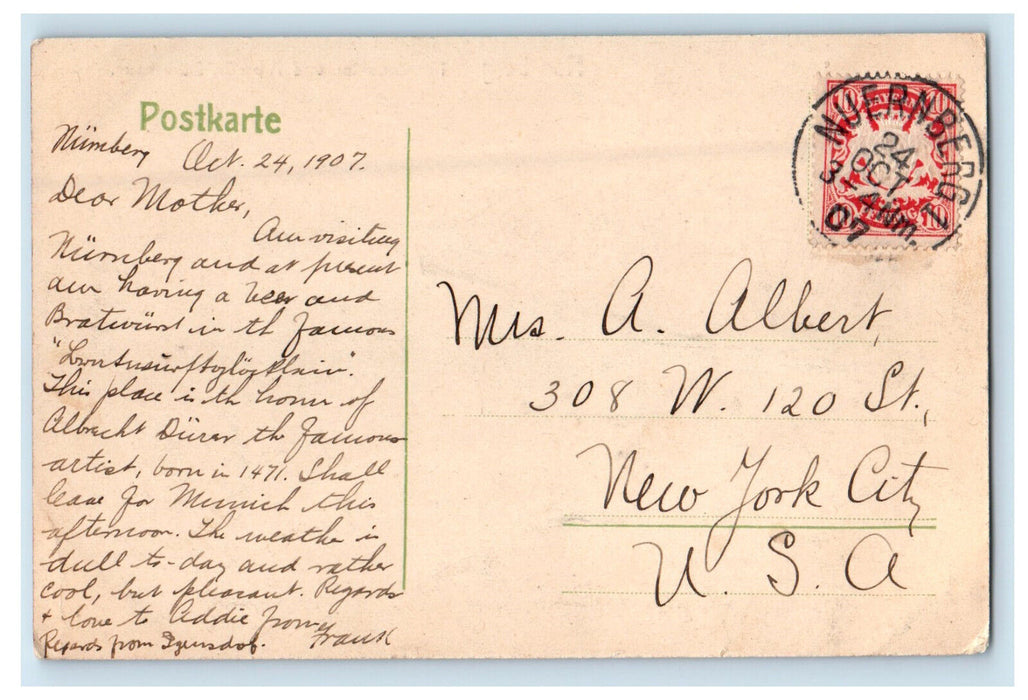 Postkarte
Nürnberg Oct. 24, 1907.
Dear Mother,
Am visiting
Nürnberg and at present
am having a beer and
Bratwürst in th famous
This place is th home of
Albrecht Dürer th famous
artist, born in 1471. Shall
leave for Munich this
afternoon. The weather is
dull to-day and rather
cool, but pleasant. Regards
+ love to Addie from
Frank
Regards from
NUERNBERG 2
24
OCT
3-4Nm.
07
10 10
BAYERN
10
Mrs. A. Albert,
308 W. 120 St.,
New York City
U. S. A